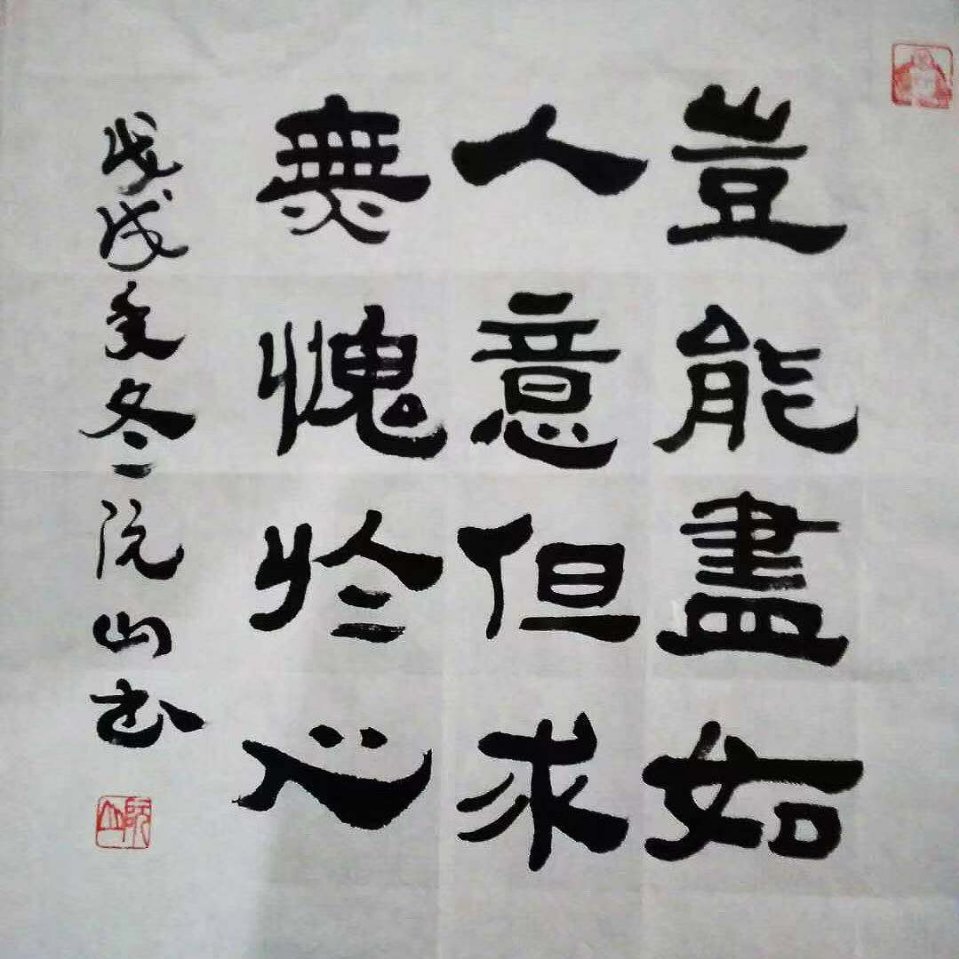 豈能盡如
人意但求
無愧於心
戊戌年冬阮山书